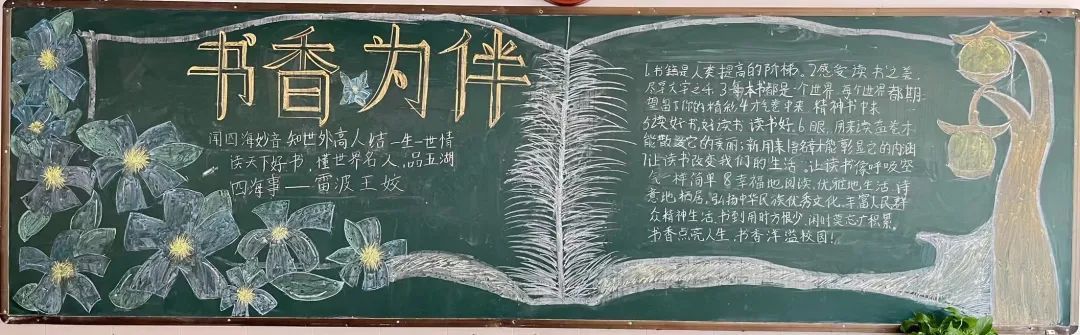 书香为伴
闻四海妙音,知世外高人,结一生一世情
读天下好书,懂世界名人,品五湖
四海事——雷波王姣
1.书籍是人类提高的阶梯。2感受读书之美,
尽享文字之乐.3每本书都是一个世界,每个世界都期
望留下你的精彩,4才气书中来,精神书中来
5读好书,好读书,读书好.6眼,用来读尽卷才
能散发它的美丽;新用来悟才能彰显它的内涵
7让读书改变我们的生活,让读书像呼吸空
气一样简单8幸福地阅读,优雅地生活,诗
意地栖居.9弘扬中华民族优秀文化,丰富人民群
众精神生活,书到用时方恨少,闲时莫忘广积累。
书香点亮人生,书香洋溢校园!